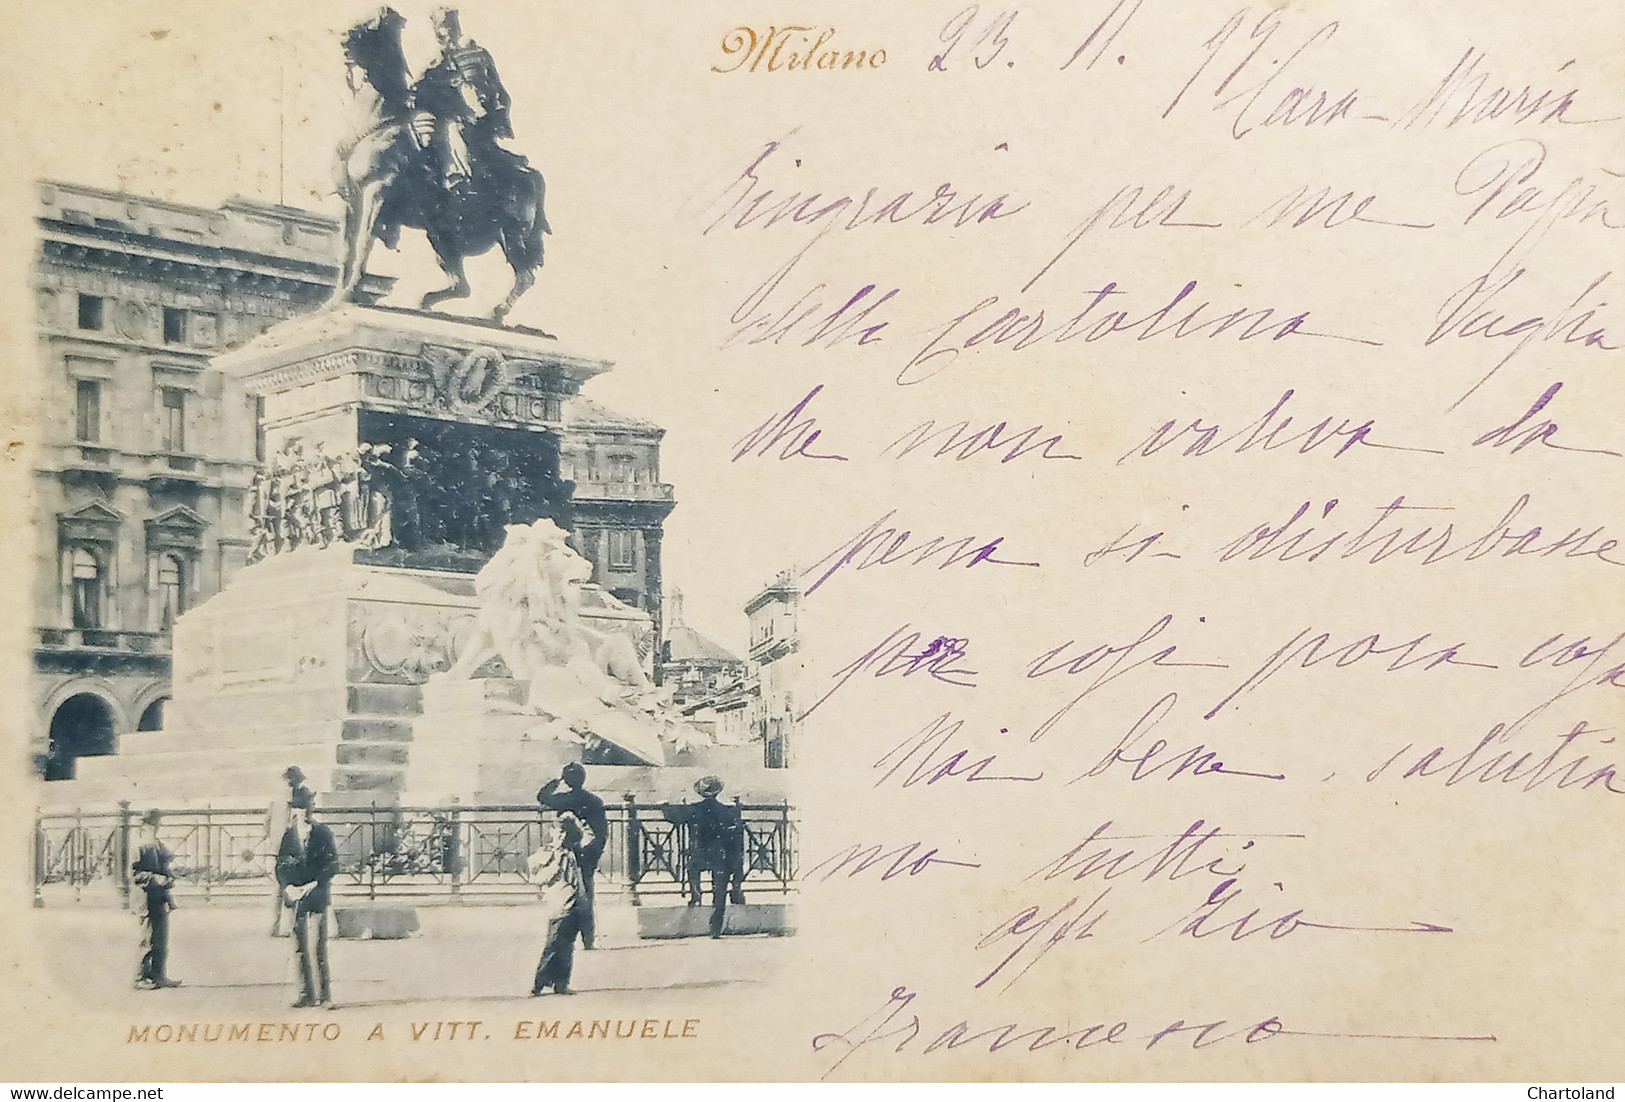 Milano 23. 11. 99.
Cara Maria
Ringrazia per me Papà
della Cartolina Vaglia
che non valeva la
pena si disturbasse
per così poca cosa
Noi bene, salutia
mo tutti
aff. Zio
Francesco
MONUMENTO A VITT. EMANUELE
www.delcampe.net
Chartoland